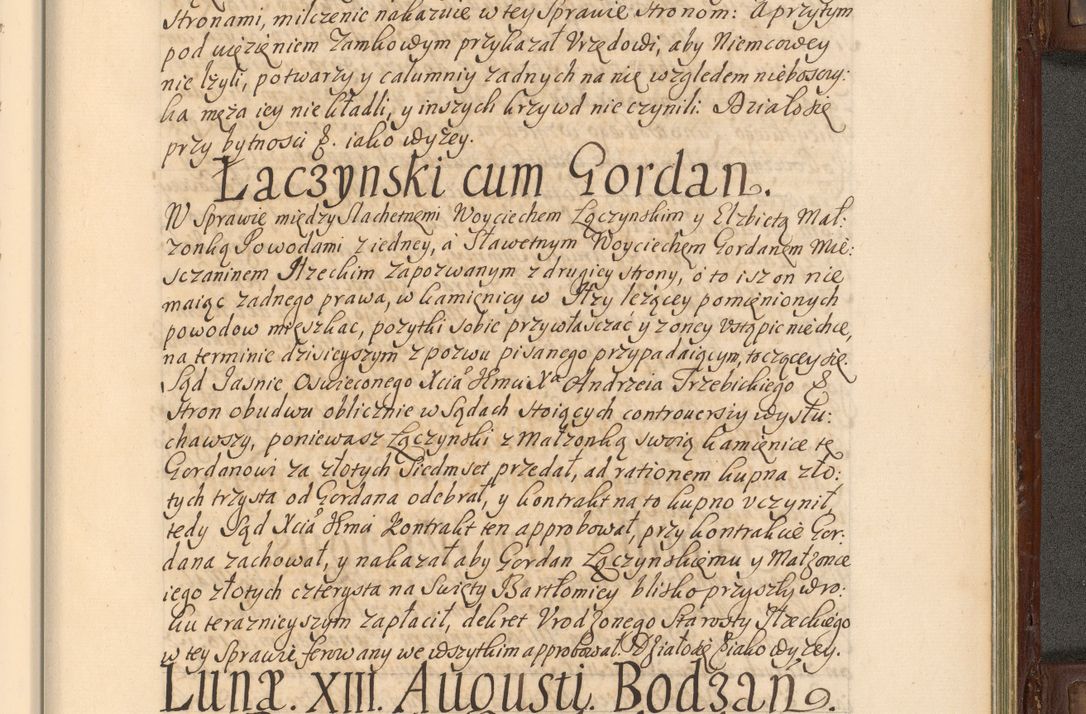 Stronami, milczenie nakazuie w tey Sprawie Stronom: A przytym
pod więzięniem Zamkowym przykazał Vrzędowi, aby Niemcowey
nie lżyli, potwarzy y calumniy żadnych na nię względem nieboszcy:
ka męża iey nie kładli, y inszych krzywd nie czynili. Działo się
przy bytnosci &. iako wyżey.
Łaczynski cum Gordan.
W Sprawie między Slachetnemi Woyciechem Łączynskim y Elzbietą Mał:
zonką Powodami z iedney, á Sławetnym Woyciechem Gordanem Mie:
sczaninem Iłzeckim zapozwanym z drugiey strony, o to isz on nie
maiąc żadnego prawa, w kamięnicy w Iłży leżącey pomięnionych
powodow mieszkac, pożytki sobie przywłasczać y z oney vstąpic niechce,
na terminie dzisieyszym z pozwu pisanego przypadaiącym, toczącey się
Sąd Jasnie Oswieconego Xcia Jmci Xa Andrzeia Trzebickiego &
Stron obudwu oblicznie w Sądach stoiących controuersiy wysłu:
chawszy, poniewasz Łączynski z Małzonką swoią kamięnice tę
Gordanowi za złotych Siedmset przedał, ad rationem kupna zło:
tych trzysta od Gordana odebrał, y kontrakt na to kupno vczynił,
tedy Sąd Xcia Jmci Kontrakt ten approbował, przy kontrakcie Gor:
dana zachował, y nakazał aby Gordan Łączynskiemu y Małżonce
iego złotych czterysta na Swięty Bartłomiey blisko przyszły w ro:
ku teraznieyszym zapłacił, dekret Vrodzonego Starosty Iłzeckiego
w tey Sprawie ferowany we wszytkim approbował. Działo się & iako wyżey.
Lunæ. XIII. Augusti. Bodzan.